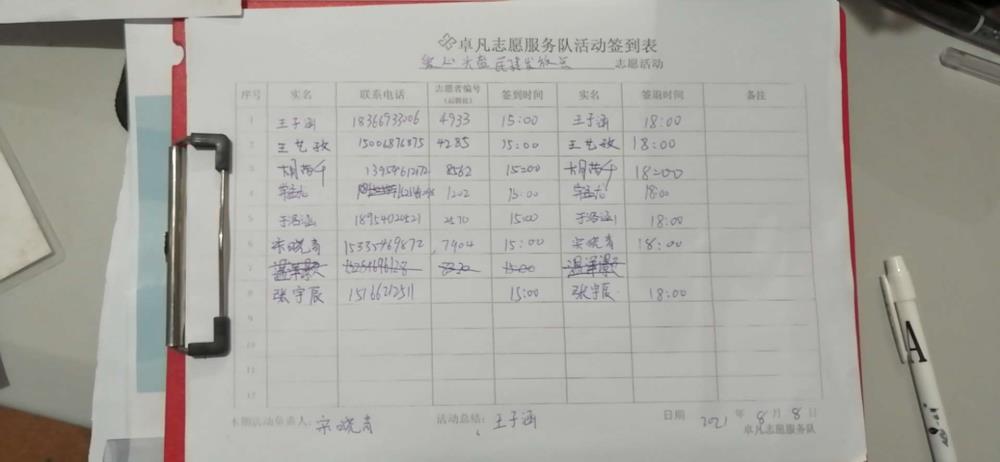 卓凡志愿服务队活动签到表
爱心 民建发放点 志愿活动
序号 实名 联系电话 志愿者编号(后四位) 签到时间 实名 签退时间 备注
1 王子涵 18366933006 4933 15:00 王子涵 18:00
2 王艺孜 15006876875 4285 15:00 王艺孜 18:00
3 8562 15:00 18:00
4 1202 15:00 18:00
5 18954020521 2570 15:00 18:00
6 宋晓青 15335469872 7904 15:00 宋晓青 18:00
7 15:00
8 张宇辰 15:00 张宇辰 18:00
9
10
11
12
本期活动负责人: 宋晓青 活动总结: 王子涵 日期 2021 年 8 月 8 日
卓凡志愿服务队
A